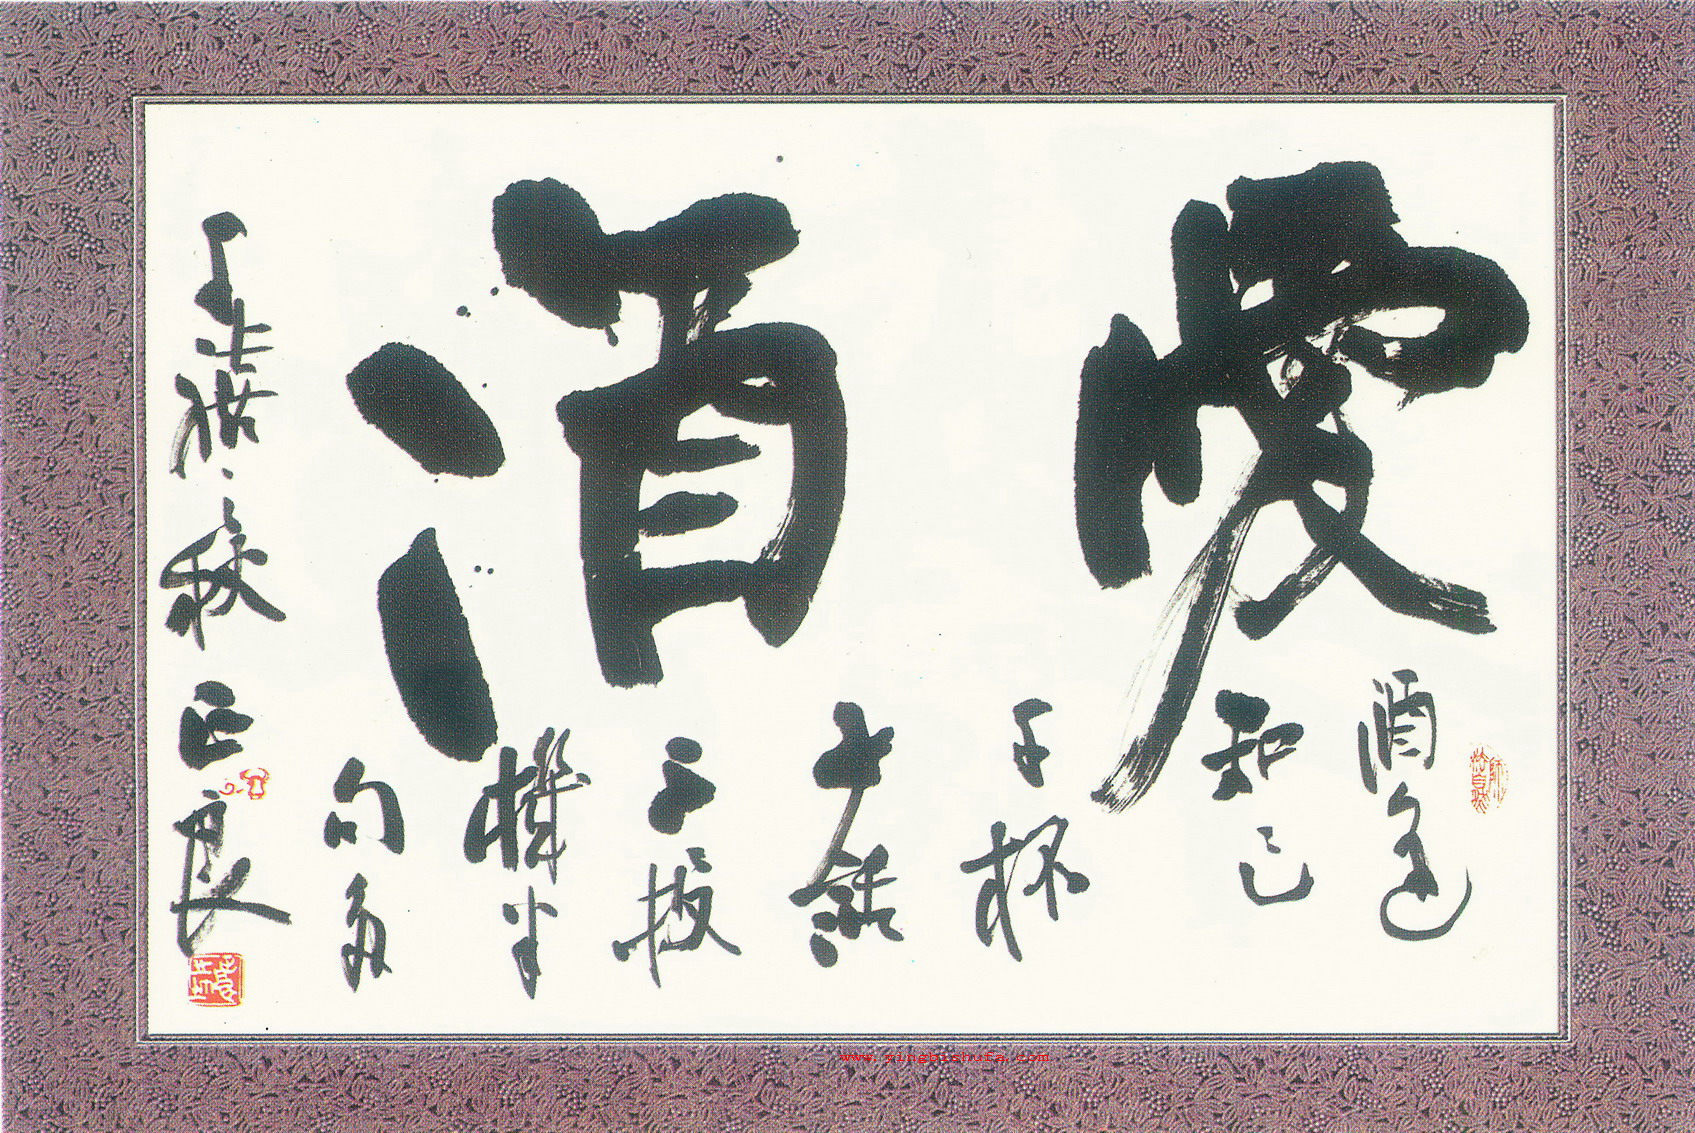 愛酒
酒逢
知己
千杯
少話
不投
機半
句多
丁丑秋正良
www.yingbishufa.com